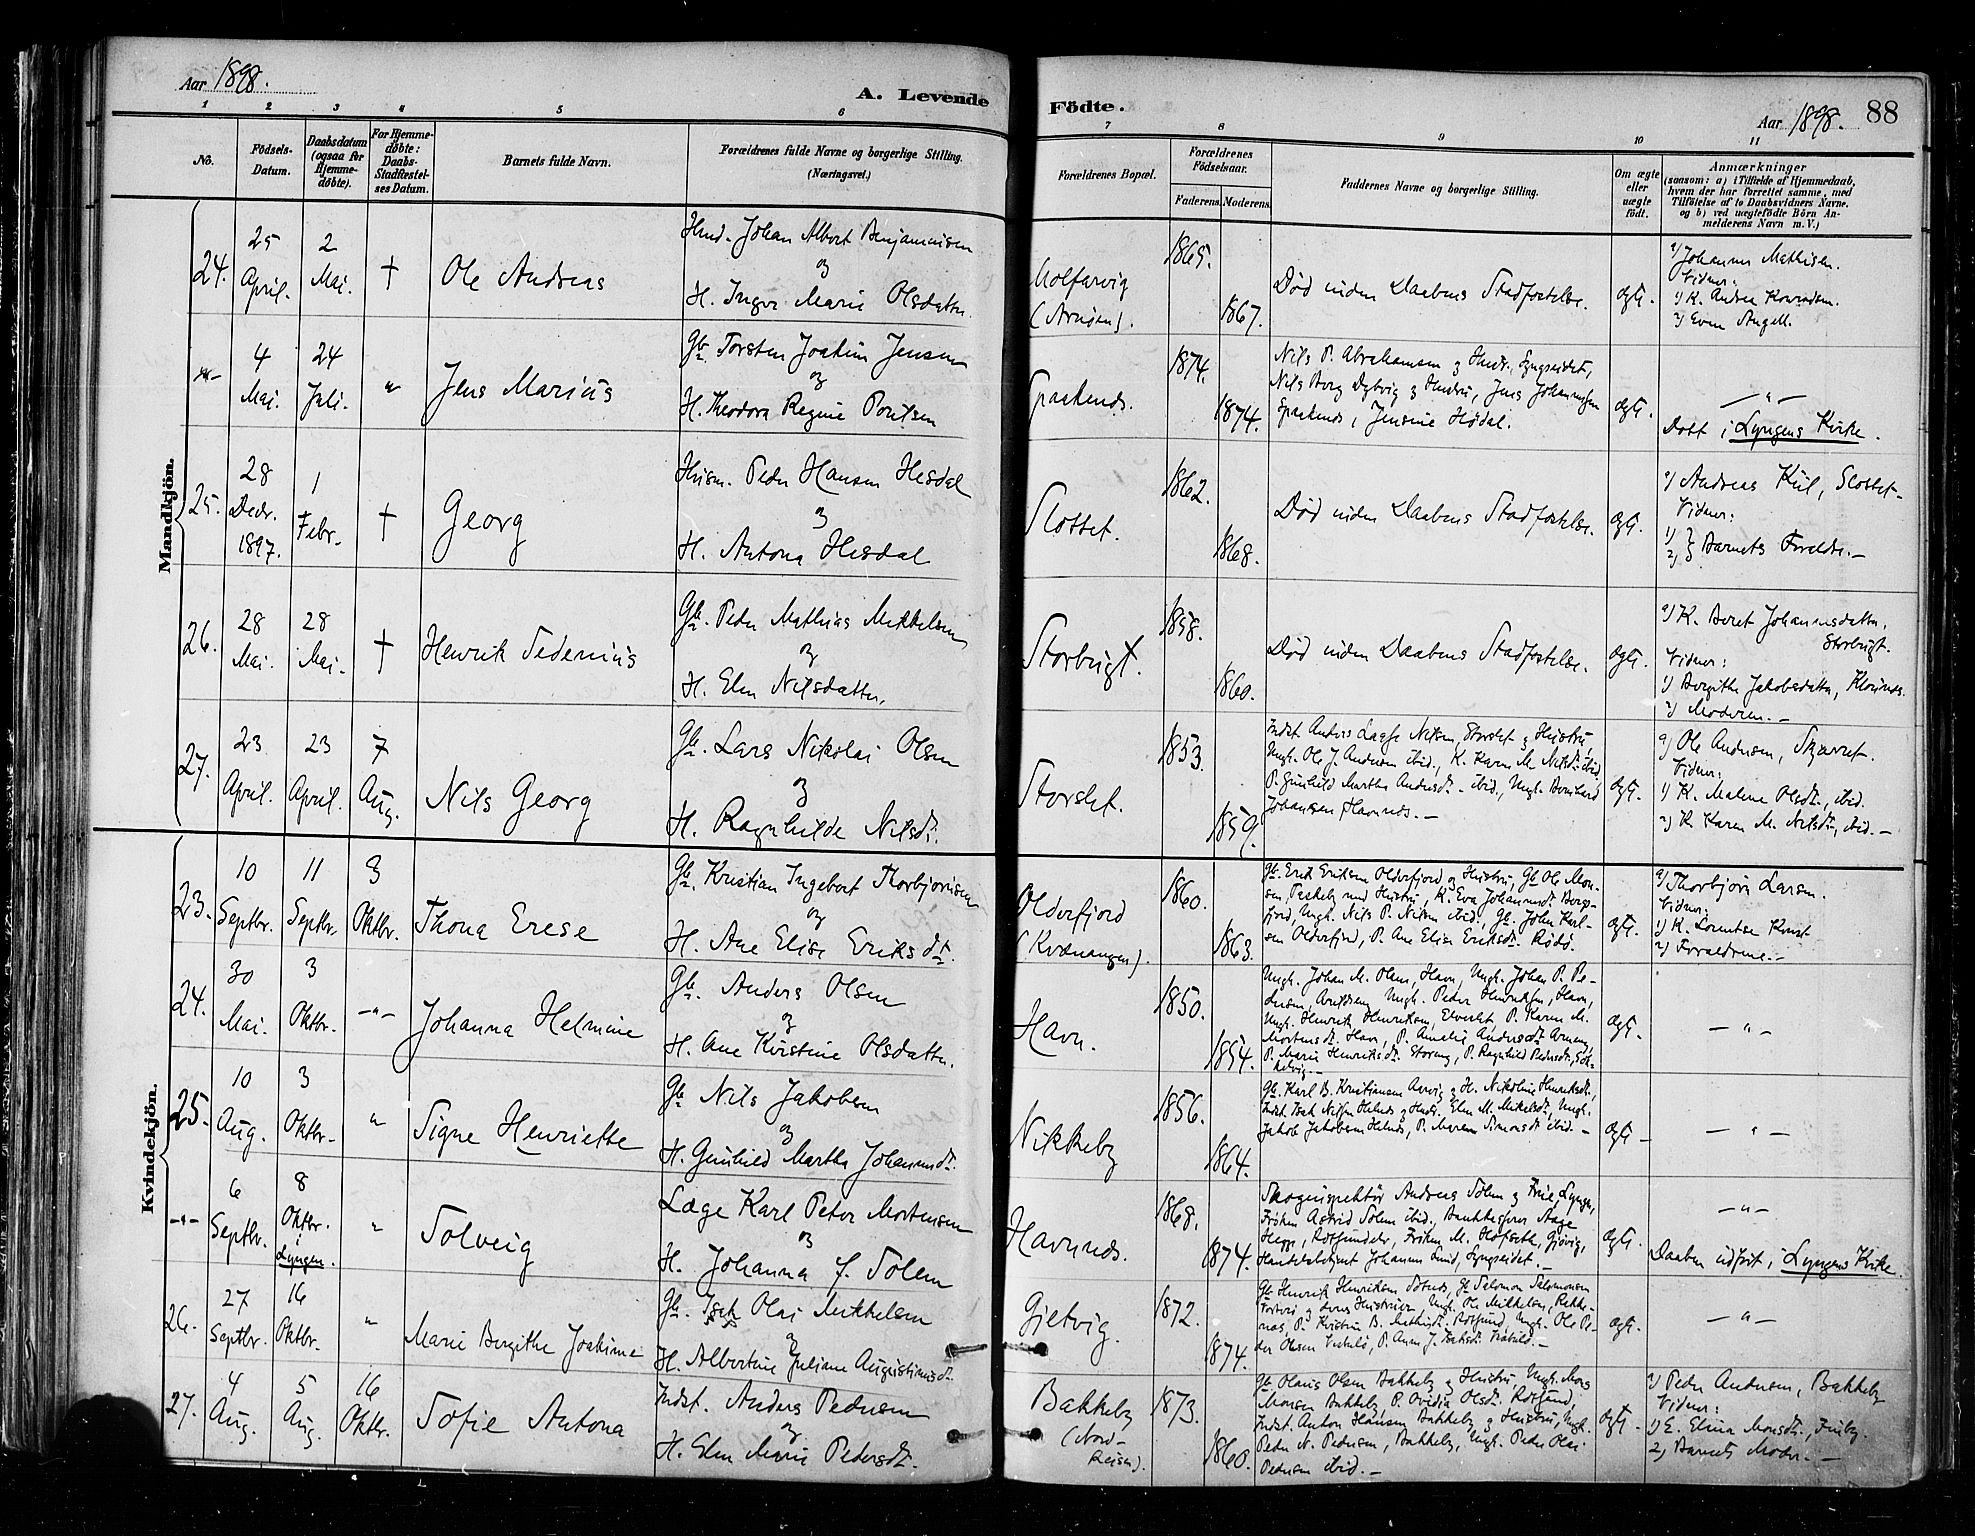 Aar 1898.
A. Levende
Födte.
Aar 1898.
88
1 2 3 4 5 6 7 8 9 10 11
No.
Födsels-
Datum.
Daabsdatum
(ogsaa for
Hjemme-
døbte).
For Hjemme-
døbte:
Daabs-
Stadfæstel-
ses Datum.
Barnets fulde Navn.
Forældrenes fulde Navne og borgerlige Stilling.
(Næringsvei.)
Forældrenes Bopæl.
Forældrenes
Födselsaar.
Faderens. Moderens.
Faddernes Navne og borgerlige Stilling.
Om ægte
eller
uægte
födt.
Anmærkninger
(saasom: a) i Tilfælde af Hjemmedaab,
hvem der har forrettet samme, med
Tilföielse af to Daabsvidners Navne.
og b) ved uægtefödte Börn An-
melderens Navn m.V.)
Mandkjön.
24.
25
April.
2
Mai.
†
Ole Andreas
Johan Albert Benjaminsen
og
H. Inger Marie Olsdatter.
(Arnöen).
1865.
1867.
Död inden Daabens Stadfæstelse.
ægte.
a) Johannes Mathisen.
Vidner:
1) K. Andrea
2) Even Angell.
4
Mai.
24
Juli.
"
Jens Marius
Gbr. Torsten Joakim Jensen
og
H. Theodora Regine Poulsen
Spaakenes.
1874.
1874.
Nils P. Abrahamsen og Hustr., Lyngseidet,
Nils Berg Dybvig og Hustru, Jens Johannesen
Spaakenes, Jensine Hödal.
ægte.
— " —
Döbt i Lyngens Kirke.
25.
28
Decbr.
1897.
1
Febr.
†
Georg
Husm. Peder Hansen Hesdal
og
H. Antona Hesdal
Slottet.
1862.
1868.
Död inden Daabens Stadfæstelse.
ægte.
a) Andreas Kiil, Slottet.
Vidner:
1) }
2) } Barnets Foreldre. —
26.
28
Mai.
28
Mai.
†
Henrik Pedenius
Gbr. Peder Mathias Mikkelsen
og
H. Elen Nilsdatter.
Storbugt.
1858.
1860.
Död inden Daabens Stadfæstelse.
ægte.
a) K. Beret Johannesdatter,
Storbugt.
Vidner:
1) Bergithe Jakobsdatter,
2) Moderen. —
27.
23
April.
23
April.
7
Aug.
Nils Georg
Gbr. Lars Nikolai Olsen
og
H. Ragnhilde Nilsdt.
Storslet.
1853.
1859.
Indst. Anders Lasse Nilsen, Storslet og Hustru,
Ungk. Ole J. Andersen ibid., K. Karen M. Nilsdt. ibid.
P. Gunhild Martha Andersdt. ibid., Ungk. Bernhard
Johansen Havnnes. —
ægte.
a) Ole Andersen,
Vidner:
1) K. Malene Olsdt., ibid.
2) K. Karen M. Nilsdt., ibid. —
Kvindekjön.
23.
10
Septbr.
11
Septbr.
3
Oktbr.
Thona Erese
Gbr. Kristian Ingebert Thorbjörnsen
og
H. Ane Elise Eriksdt.
Olderfjord
(Kvænangen).
1860.
1863.
Gbr. Erik Eriksen Olderfjord og Hustru, Gbr. Ole Mon-
sen, med Hustru, K. Eva Johannesdt. Bergs-
fjord, Ungk. Nils P. Nilsen ibid., Gbr. John Karl-
sen Olderfjord, P. Ane Elise Eriksdt. Rödö.
ægte.
a) Thorbjörn Larsen.
Vidner:
1) K. Lorentse
2) Forældrene. —
24.
30
Mai.
3
Oktbr.
— " —
Johanna Helmine
Gbr. Anders Olsen
og
H. Ane Kristine Olsdatter.
Havn.
1850.
1854.
Ungk. Johan M. Olsen, Havn, Ungk. Johan P. Pe-
dersen, Ungk. Peder Henriksen, Havn,
Ungk. Henrik Henriksen, Elveslet, P. Karen M.
Mortensdt. Havn, P. Amelie Andersdt.
P. Marie Henriksdt. Storeng, P. Ragnhild Pedersdt.,
ægte.
— " —
25.
10
Aug.
3
Oktbr.
"
Signe Henriette
Gbr. Nils Jakobsen
og
H. Gunhild Martha Johannesdt.
Nikkeby
1856.
1864.
Gbr. Karl B. Kristiansen og H. Nikoline Henriksdt.,
Indst. Isak Nilsen og Hustr. Elen M. Mikkelsdt., Ungk.
Jakob Jakobsen P. Maren Simonsdt. ibid. —
ægte —
— " —
— " —
6
Septbr.
8
Oktbr.
i
Lyngen.
"
Solveig
Læge Karl Peter Mortensen
og
H. Johanna f. Solem
Havnnes.
1868.
1874.
Skoginspektör Andreas Solem og Frue, Lyngen,
Fröken Astrid Solem ibid., Aage
Rotsundelv, Fröken M. Hofseth, Gjövig,
Handelsbetjent Johannes Lund, Lyngseidet. —
ægte.
— " —
Daaben udfört i Lyngens Kirke.
26.
27
Septbr.
16
Oktbr.
"
Marie Bergithe Joakime
Gbr. Isak Olai Mikkelsen
og
H. Albertine Juliane Augustinusdt.
Gjetvig.
1872.
1874.
Gbr. Henrik Henriksen Gbr. Salomon Salomonsen
og deres Hustruer, Ungk. Ole Mikkelsen,
Rotsund, Ungk. Ole Pe-
der Olsen
ægte.
— " —
27.
4
Aug.
5
Aug.
16
Oktbr.
Sofie Antona
Indst. Anders Pedersen
og
H. Elen Marie Pedersdt.
Bakkeby
(Nord-
Reisen).
1873.
1860.
Gbr. Olaus Olsen Bakkeby og Hustru, Ungk. Mons
Monsen Bakkeby, P. Ovidia Olsdt., Rotsund,
Indst. Anton Hansen Bakkeby og Hustru, Ungk.
Peder N. Pedersen, Bakkeby, Ungk. Peder Olai
Pedersen ibid. —
ægte.
a) Peder Andersen, Bakkeby
Vidner:
1) E. Elina Monsdt.,
2) Barnets Moder. —